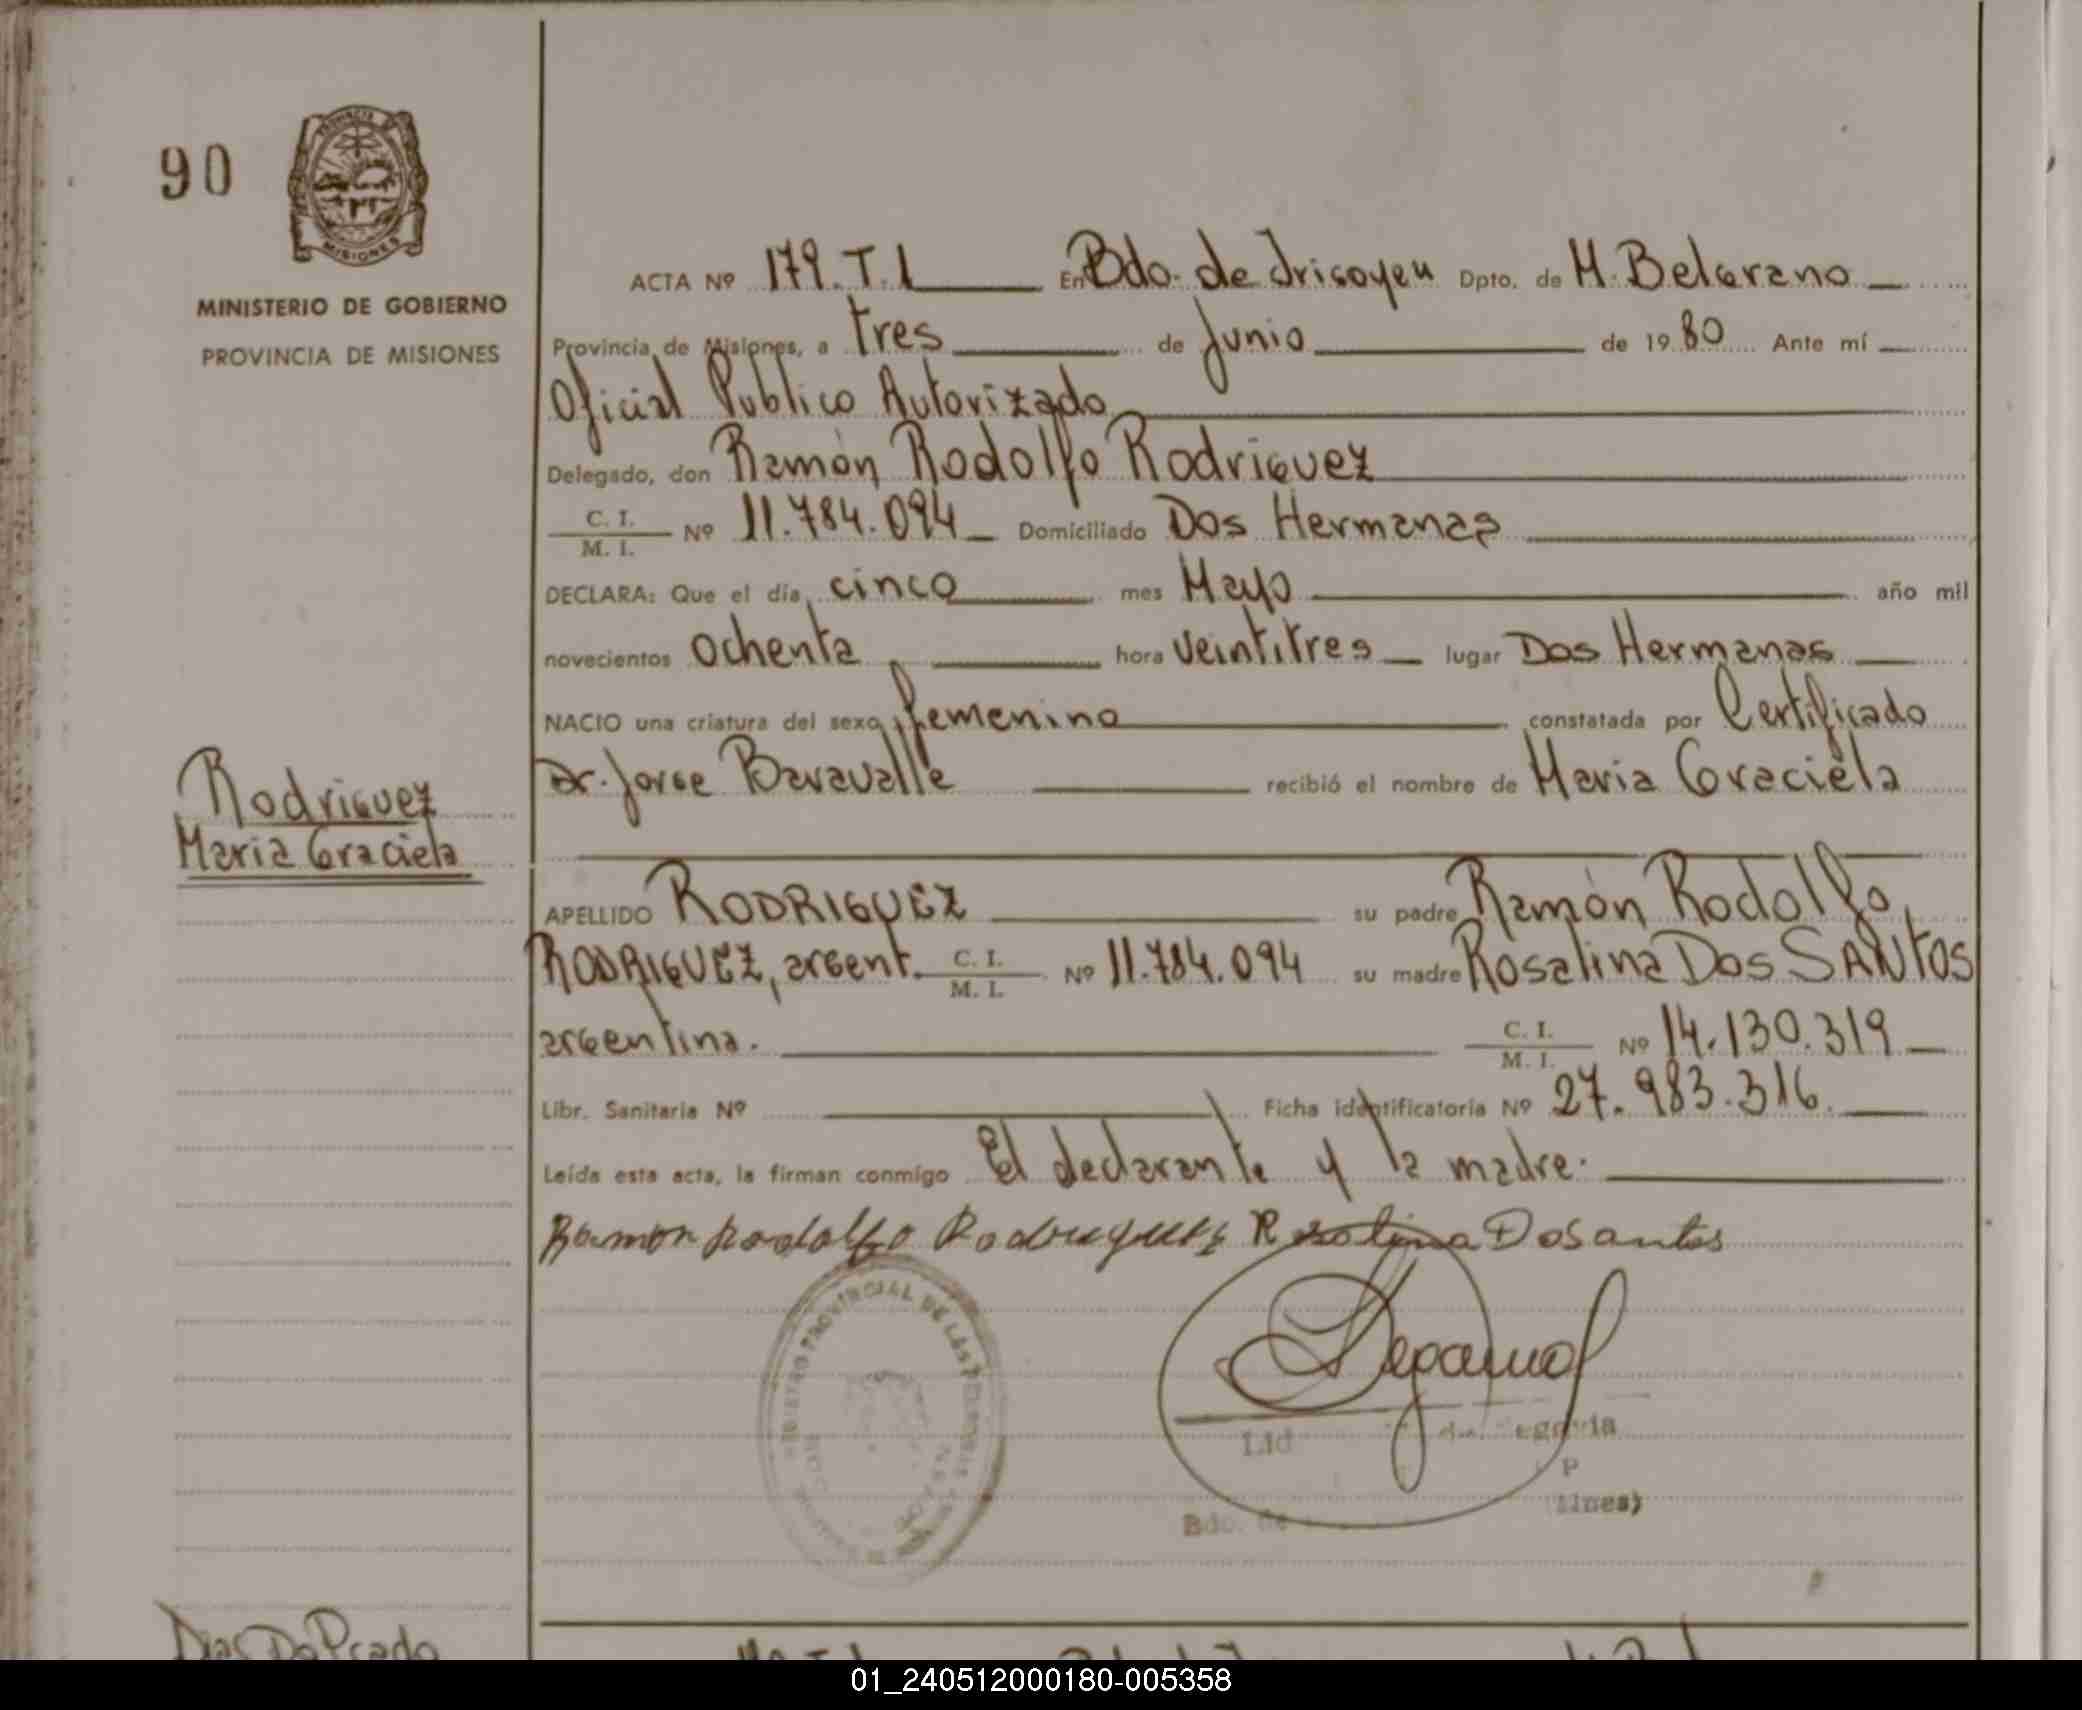 90
PROVINCIA DE
MISIONES
MINISTERIO DE GOBIERNO
PROVINCIA DE MISIONES
ACTA Nº 179. T. 1 En Bdo. de Irigoyen Dpto. de M. Belgrano
Provincia de Misiones, a tres de Junio de 1980 Ante mí
Oficial Publico Autorizado
Delegado, don Ramón Rodolfo Rodriguez
C. I.
M. I. Nº 11.784.094 Domiciliado Dos Hermanas
DECLARA: Que el día cinco mes Mayo año mil
novecientos ochenta hora veintitres lugar Dos Hermanas
NACIO una criatura del sexo femenino constatada por Certificado
Dr. Jorge Baravalle recibió el nombre de Maria Graciela
Rodriguez
Maria Graciela
APELLIDO RODRIGUEZ su padre Ramón Rodolfo
RODRIGUEZ, argent. C. I. M. I. Nº 11.784.094 su madre Rosalina Dos SANtos
argentina. C. I. M. I. Nº 14.130.319
Libr. Sanitaria Nº Ficha identificatoria Nº 27.983.316.
Leída esta acta, la firman conmigo El declarante y la madre.
Ramon Rodolfo Rodriguez Rosalina Dosantos
PROVINCIAL DE LAS PERSONAS
Lid
Bdo. de
Dias Do Prado
01_240512000180-005358